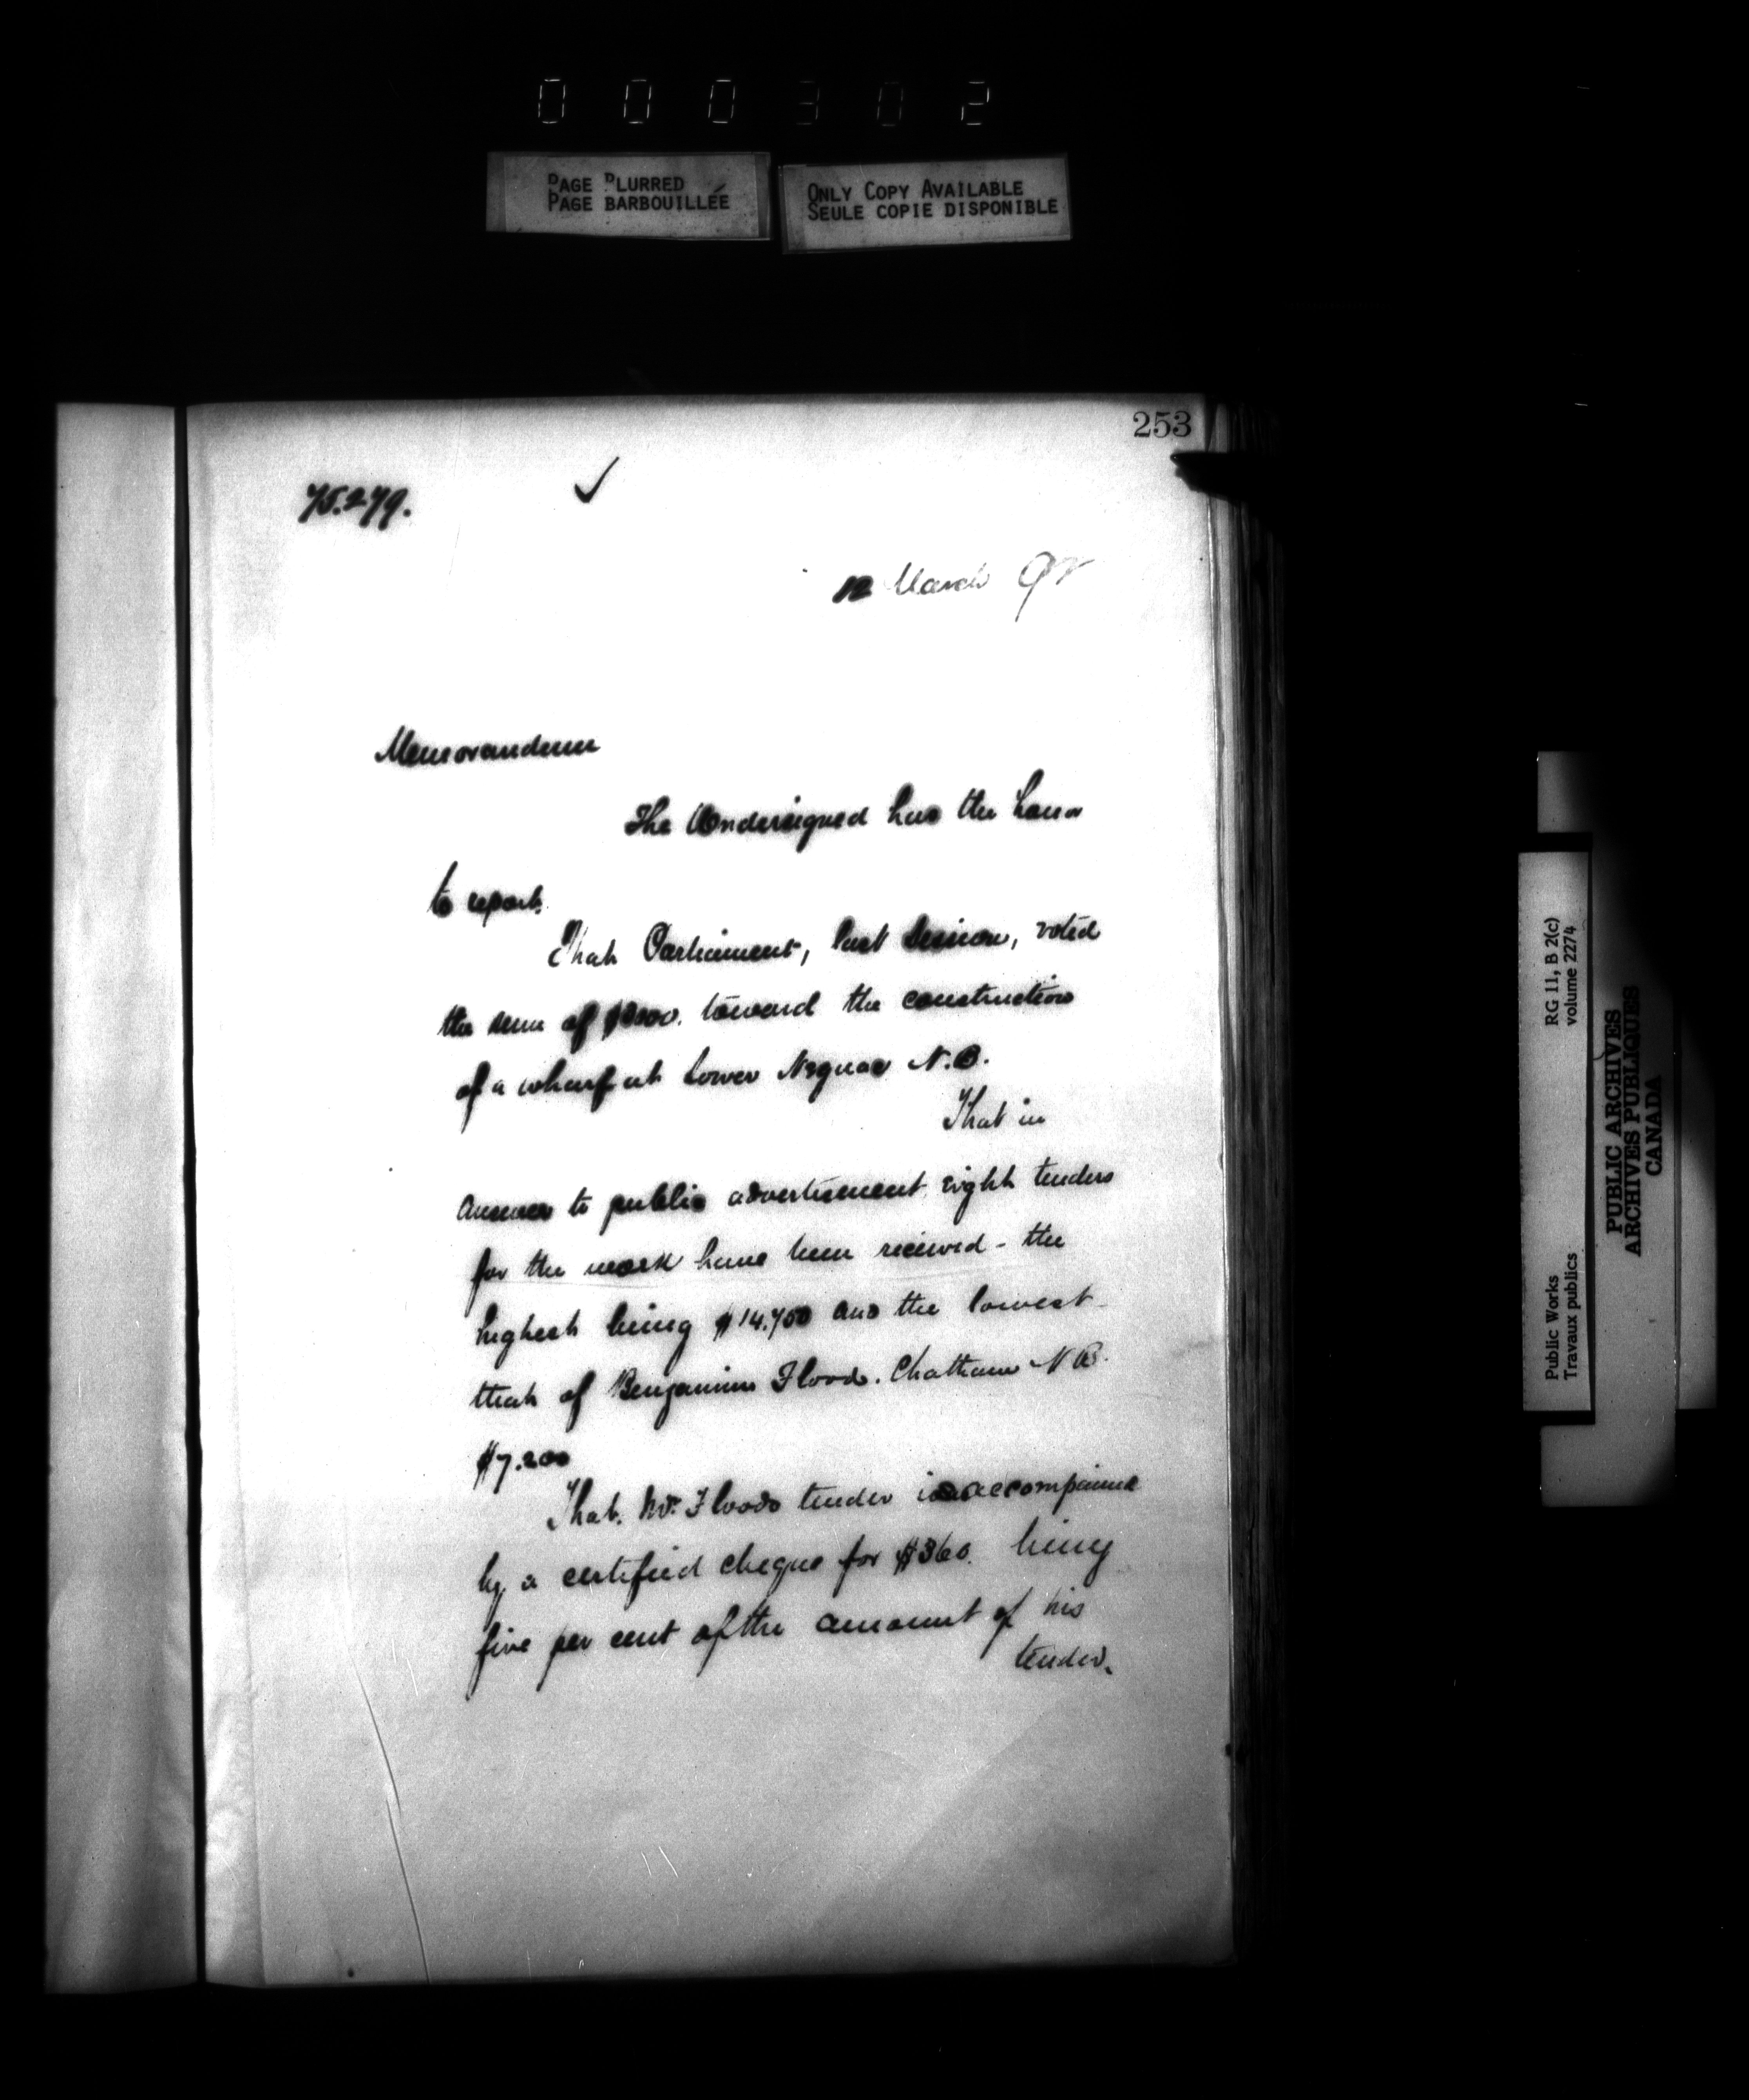 000302
PAGE BLURRED
PAGE BARBOUILLÉE
ONLY COPY AVAILABLE
SEULE COPIE DISPONIBLE
253
75.279.
12 March 92
Memorandum
The Undersigned has the honor
to report.
That Parliament, last Session, voted
the sum of toward the construction
of a wharf at Lower Neguac N.B.
That in
answer to public advertisement eight tenders
for the work have been received - the
highest being $14.750 and the lowest
that of Benjamin Flood. Chatham N B.
$7.200
That. Mr. Floods tender is accompanied
by a certified cheque for $360. being
five per cent of the amount of his
tender.
Public Works
Travaux publics
RG 11, B 2(c)
volume 2274
PUBLIC ARCHIVES
ARCHIVES PUBLIQUES
CANADA